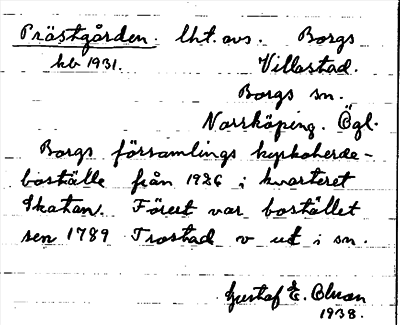 Prästgården. Uht. avs. Borgs
kb 1931. Villastad.
Borgs sn.
Norrköping. Ögl.
Borgs församlings kyrkoherde-
boställe från 1926 i kvarteret
Skatan. Förut var bostället
sen 1789 Trostad v ut i sn.
Gustaf E. Blman
1938.